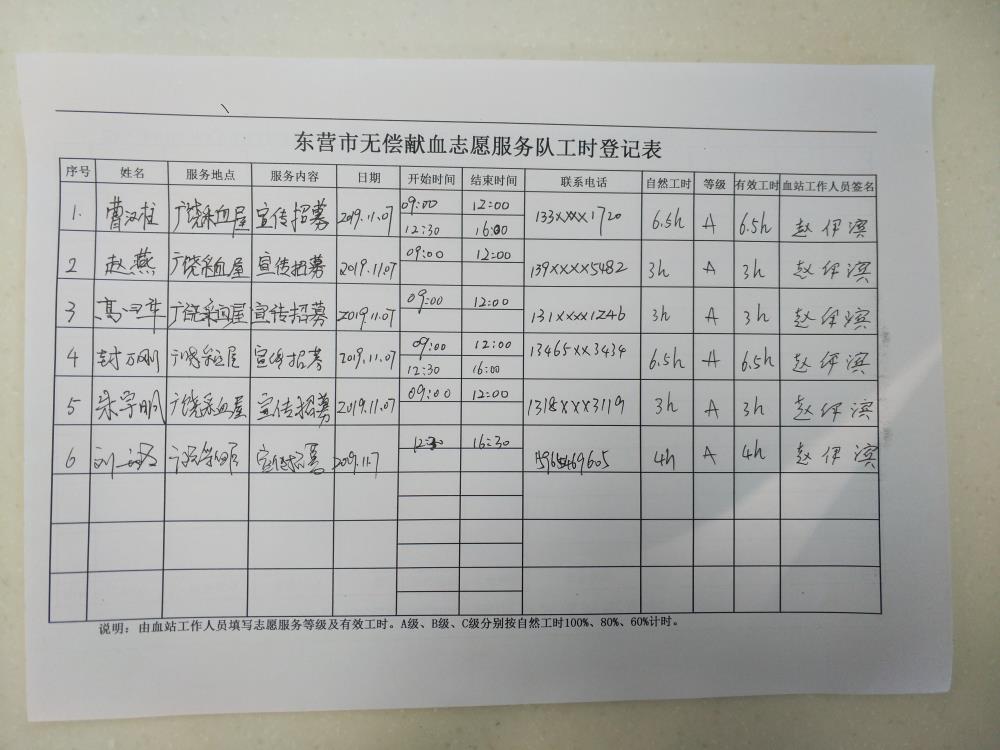 东营市无偿献血志愿服务队工时登记表
序号 姓名 服务地点 服务内容 日期 开始时间 结束时间 联系电话 自然工时 等级 有效工时 血站工作人员签名
1. 曹汉柱 广饶采血屋 宣传招募 2019.11.07 09:00 12:00 133××××1720 6.5h A 6.5h 赵伊滨
12:30 16:00
2 赵燕 广饶采血屋 宣传招募 2019.11.07 09:00 12:00 139××××5482 3h A 3h 赵伊滨
3 广饶采血屋 宣传招募 2019.11.07 09:00 12:00 131××××1246 3h A 3h 赵伊滨
4 封万刚 广饶采血屋 宣传招募 2019.11.07 09:00 12:00 13465××3434 6.5h A 6.5h 赵伊滨
12:30 16:00
5 宋学明 广饶采血屋 宣传招募 2019.11.07 09:00 12:00 1318×××3119 3h A 3h 赵伊滨
6 宣传招募 2019.11.7 12:30 16:30 4h A 4h 赵伊滨
说明：由血站工作人员填写志愿服务等级及有效工时。A级、B级、C级分别按自然工时100%、80%、60%计时。